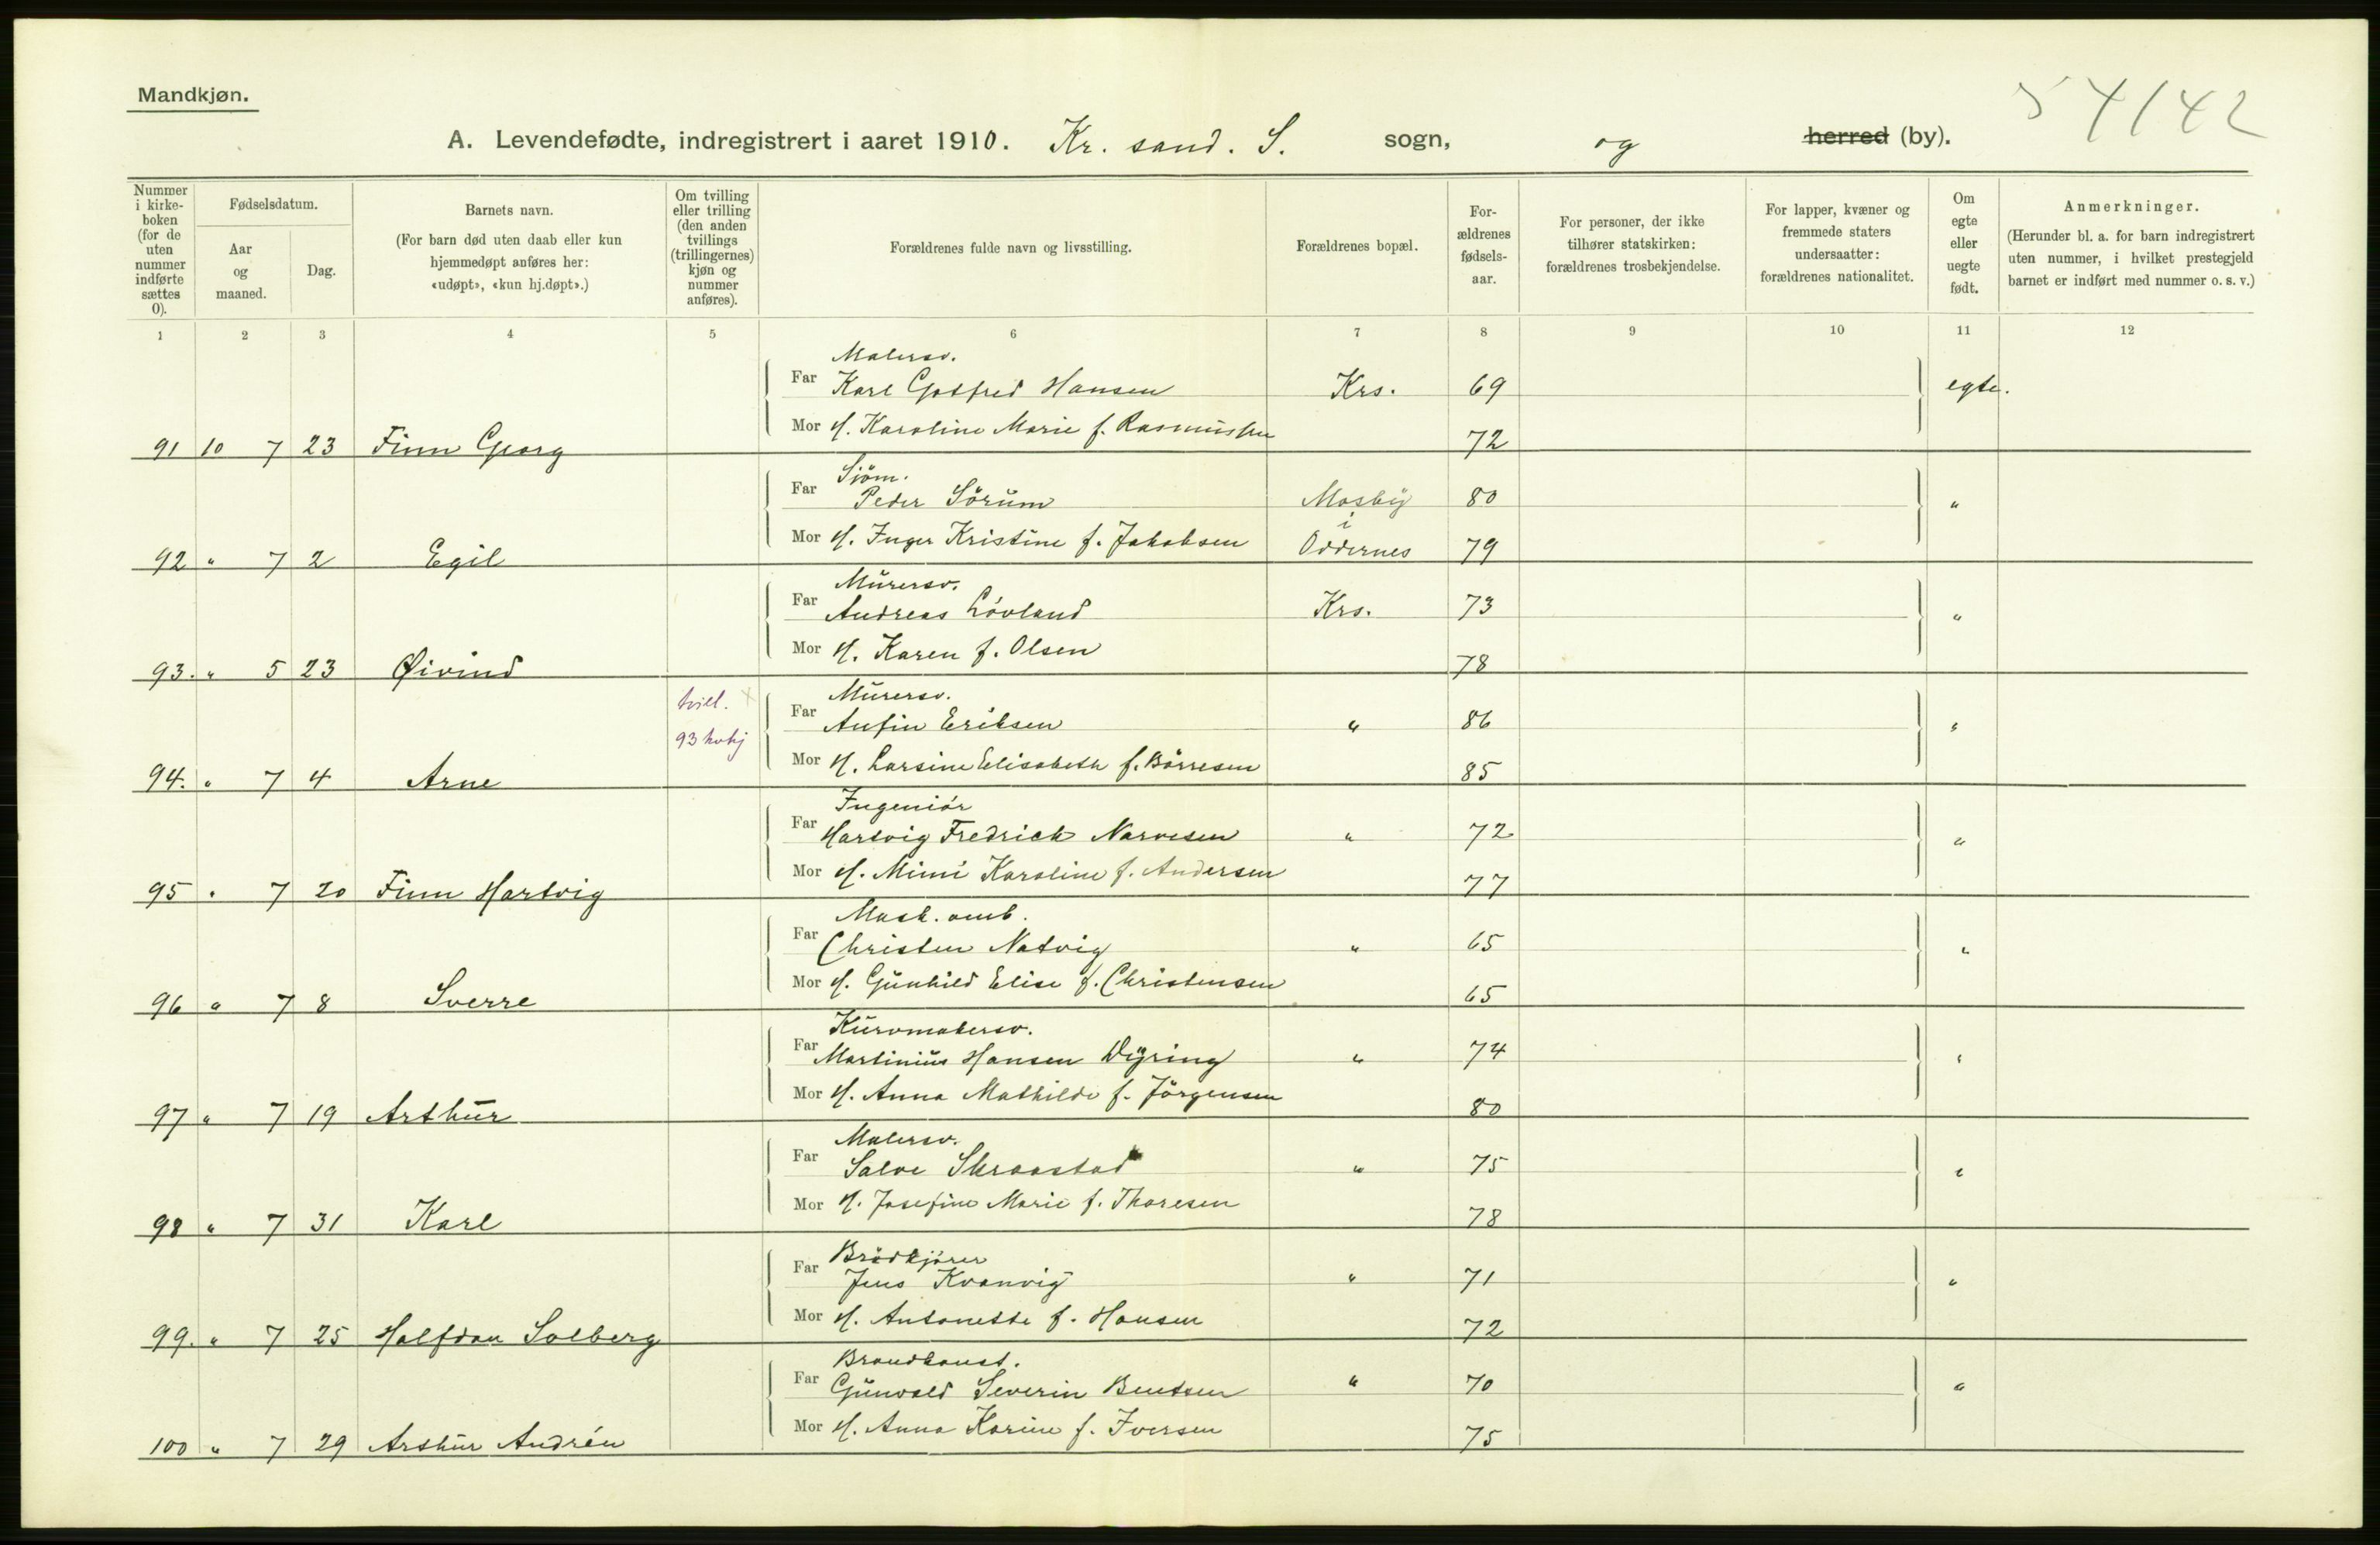 Mandkjøn.
54142
A. Levendefødte, indregistrert i aaret 1910. Kr. sand. S. sogn, og herred (by).
Nummer i kirke-boken (for de uten nummer indførte sættes 0).
Fødselsdatum.
Aar og maaned.
Dag.
Barnets navn.
(For barn død uten daab eller kun hjemmedøpt anføres her: «udøpt», «kun hj.døpt».)
Om tvilling eller trilling (den anden tvillings (trillingernes) kjøn og nummer anføres).
Forældrenes fulde navn og livsstilling.
Forældrenes bopæl.
For-ældrenes fødsels-aar.
For personer, der ikke tilhører statskirken: forældrenes trosbekjendelse.
For lapper, kvæner og fremmede staters undersaatter: forældrenes nationalitet.
Om egte eller uegte født.
Anmerkninger.
(Herunder bl. a. for barn indregistrert uten nummer, i hvilket prestegjeld barnet er indført med nummer o. s. v.)
1 2 3 4 5 6 7 8 9 10 11 12
Malersv.
Far Karl Gotfred Hansen Krs. 69 egte.
Mor H. Karoline Marie f. Rasmussen 72
91 10 7 23 Finn Georg
Sjöm.
Far Peder Sörum Mosby 80 "
i
Mor H. Inger Kristine f. Jakobsen Oddernes 79
92 " 7 2 Egil
Murersv.
Far Andreas Lövland Krs. 73 "
Mor H. Karen f. Olsen 78
93. " 5 23 Øivind
tvill. x
93 kvkj
Murersv.
Far Anfin Eriksen " 86 "
Mor H. Larsine Elisabeth f. Börresen 85
94. " 7 4 Arne
Ingeniör
Far Hartvig Fredrick Narvesen " 72 "
Mor H. Mimi Karoline f. Andersen 77
95 " 7 20 Finn Hartvig
Mask. amb.
Far Christen Natvig " 65 "
Mor H. Gunhild Elise f. Christensen 65
96 " 7 8 Sverre
Kurvmakersv.
Far Martinius Hansen Dyring " 74 "
Mor H. Anna Mathilde f. Jörgensen 80
97 " 7 19 Arthur
Malersv.
Far Salve Skraastad " 75 "
Mor H. Josefine Marie f. Thoresen 78
98 " 7 31 Karl
Brödkjörer
Far Jens Kvanvig " 71 "
Mor H. Antonette f. Hansen 72
99. " 7 25 Halfdan Solberg
Brandkonst.
Far Gunvald Severin Bentsen " 70 "
Mor H. Anna Karine f. Iversen 75
100 " 7 29 Arthur Andréu